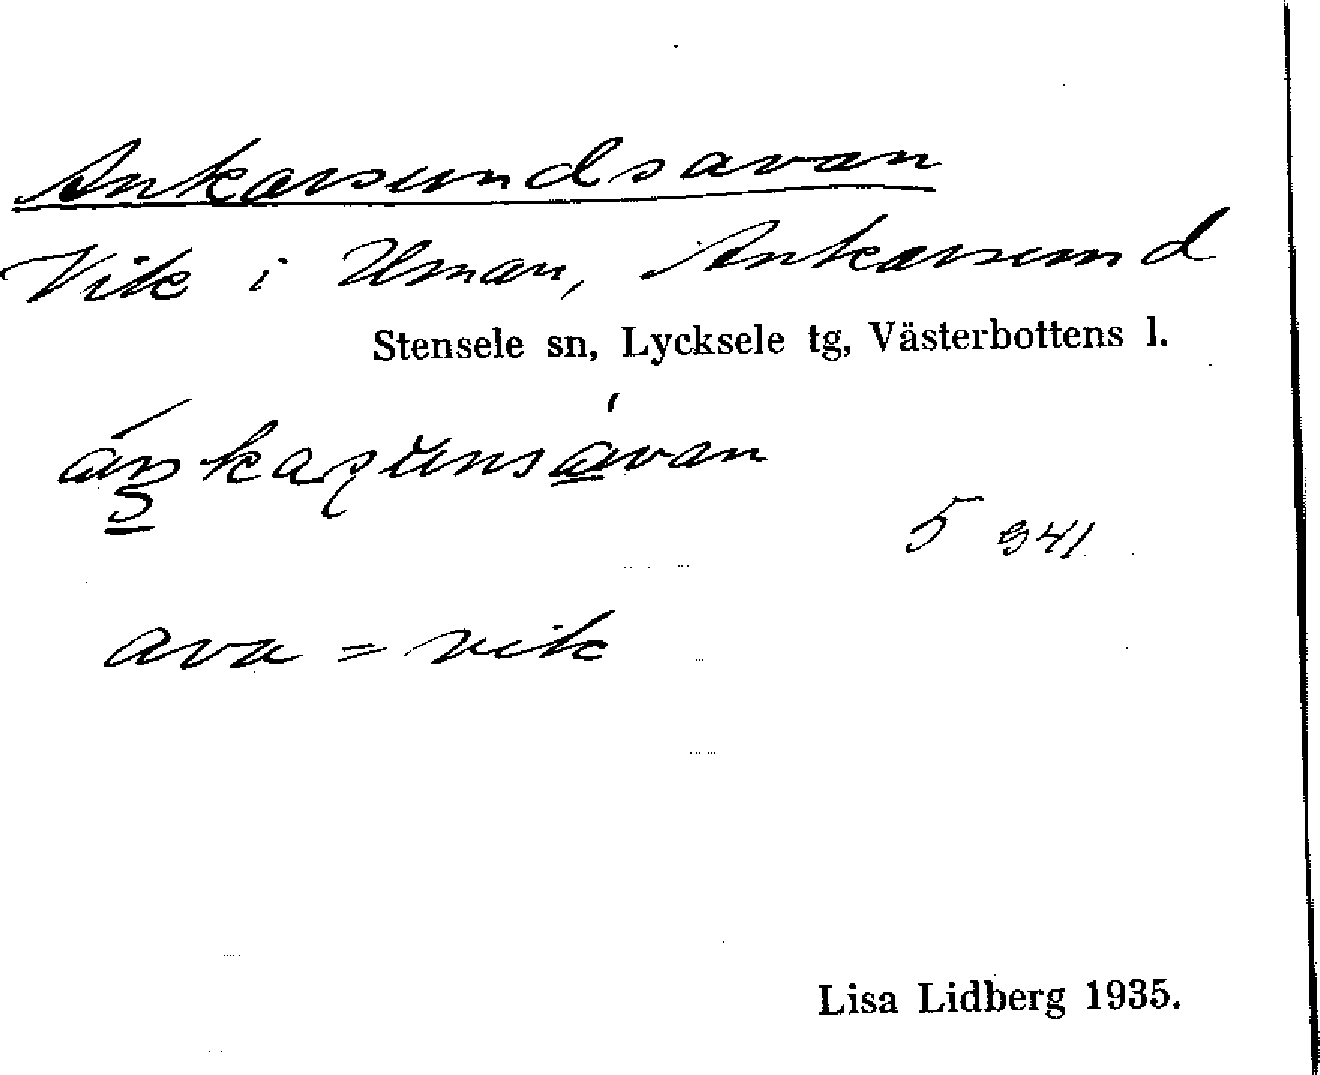 Ankarsundsavan
Vik i Uman, Ankarsund
Stensele sn, Lycksele tg, Västerbottens l.
5 941
ava = vik
Lisa Lidberg 1935.